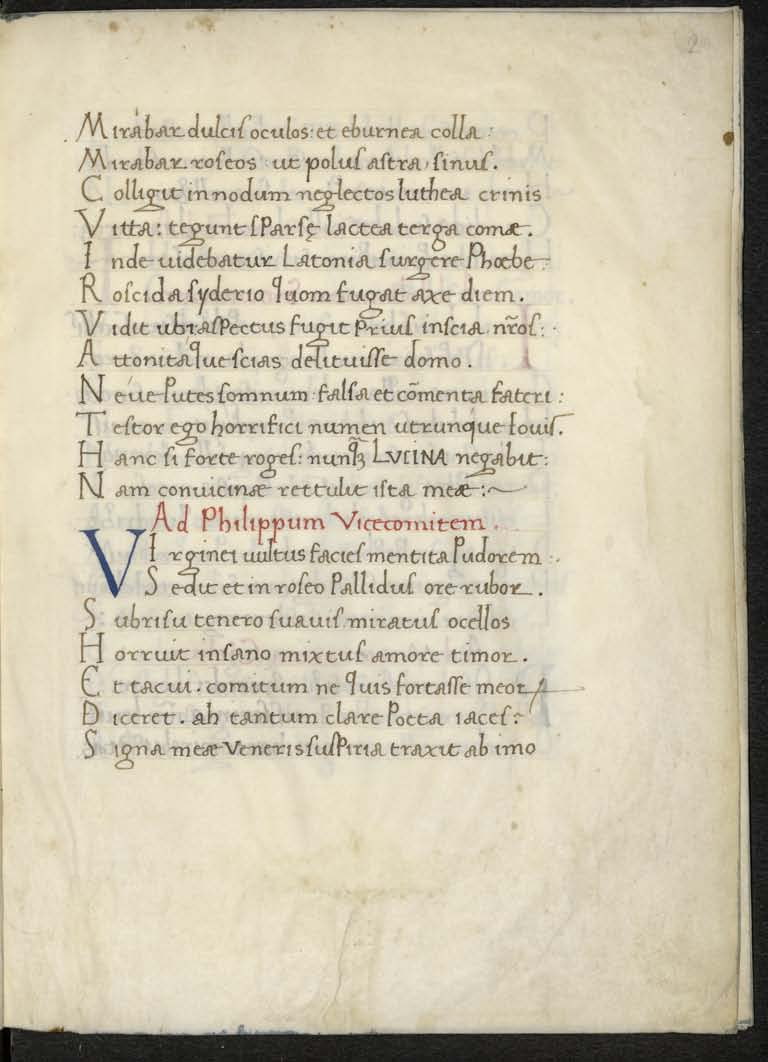 2
Mirabar dulcis oculos: et eburnea colla:
Mirabar roseos: ut polus astra, sinus.
Colligit in nodum neglectos luthea crinis
Vitta: tegunt sparsę lactea terga comæ.
Inde uidebatur Latonia surgere Phoebe:
Roscida syderio quom fugat axe diem.
Vidit ubi aspectus fugit prius inscia nr̃os:
Attonitaque scias delituisse domo.
Neue putes somnum: falsa et cõmenta fateri:
Testor ego horrifici numen utrunque Iouis.
Hanc si forte roges: nunqȝ LVCINA negabit:
Nam conuicinæ rettulit ista meæ:~
Ad Philippum Vicecomitem.
VIrginei uultus facies mentita pudorem:
Sedit et in roseo pallidus ore rubor.
Subrisu tenero suauis miratus ocellos
Horruit insano mixtus amore timor.
Et tacui. comitum ne quis fortasse meoꝝ
Diceret. ah tantum clare Poeta iaces?
Signa meæ Veneris suspiria traxit ab imo